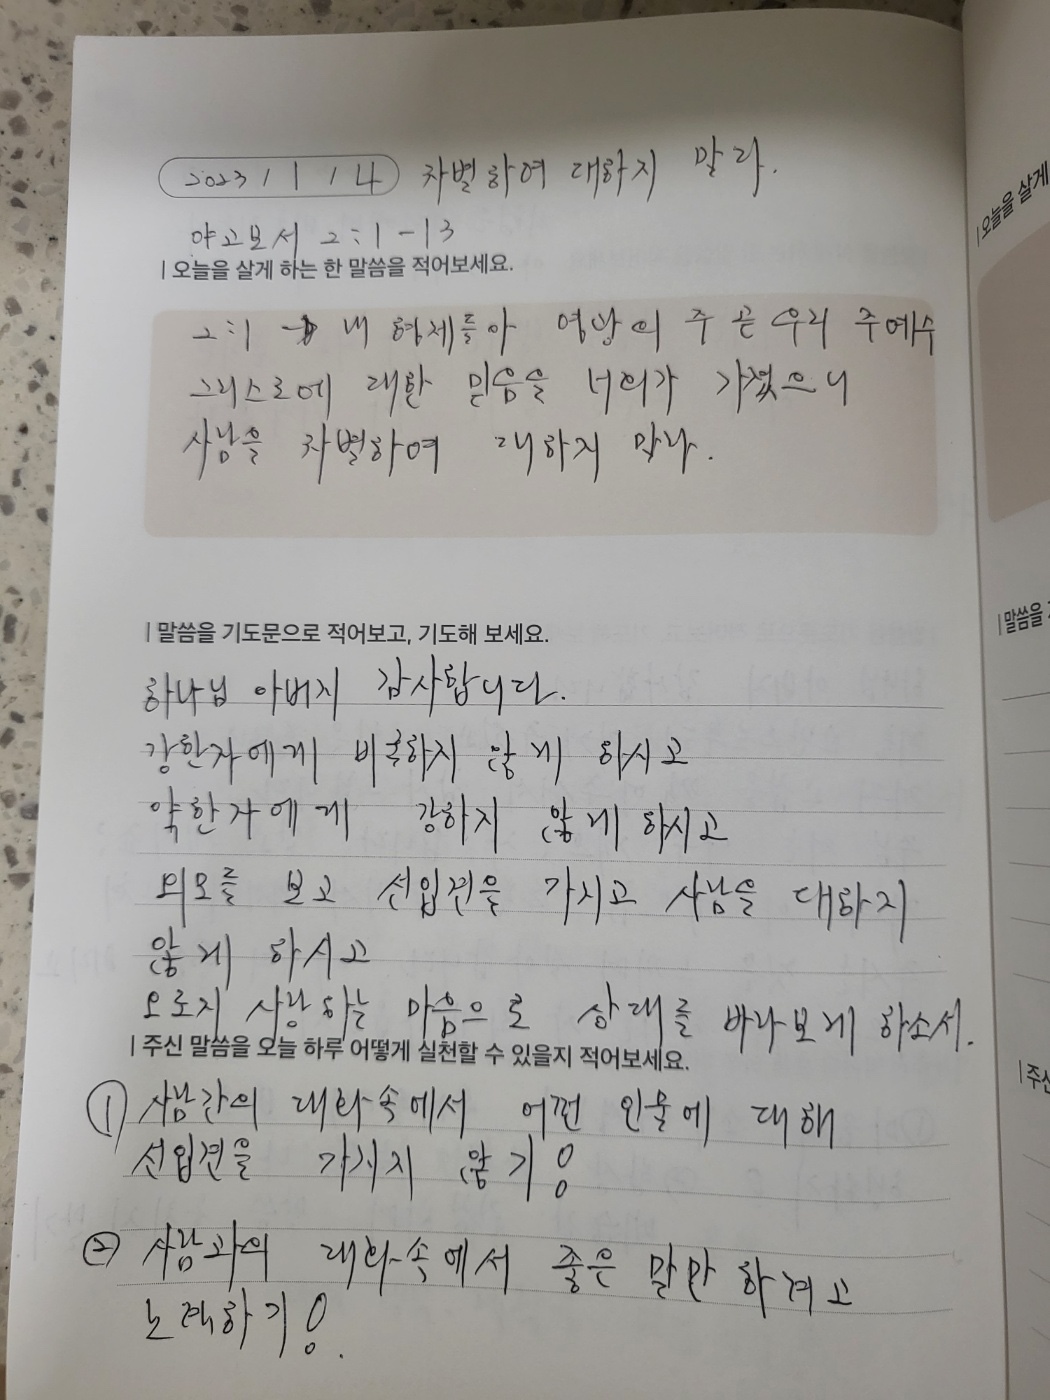 2023 / 1 / 4 차별하여 대하지 말라.
야고보서 2:1-13
| 오늘을 살게 하는 한 말씀을 적어보세요.
2:1 → 내 형제들아 영광의 주 곧 우리 주 예수
그리스도에 대한 믿음을 너희가 가졌으니
사람을 차별하여 대하지 말라.
| 말씀을 기도문으로 적어보고, 기도해 보세요.
하나님 아버지 감사합니다.
강한자에게 비굴하지 않게 하시고
약한자에게 강하지 않게 하시고
외모를 보고 선입견을 가지고 사람을 대하지
않게 하시고
오로지 사랑하는 마음으로 상대를 바라보게 하소서.
| 주신 말씀을 오늘 하루 어떻게 실천할 수 있을지 적어보세요.
① 사람간의 대화속에서 어떤 인물에 대해
선입견을 가지지 않기!
② 사람과의 대화속에서 좋은 말만 하려고
노력하기!.
| 오늘을 살게
| 말씀을
| 주신